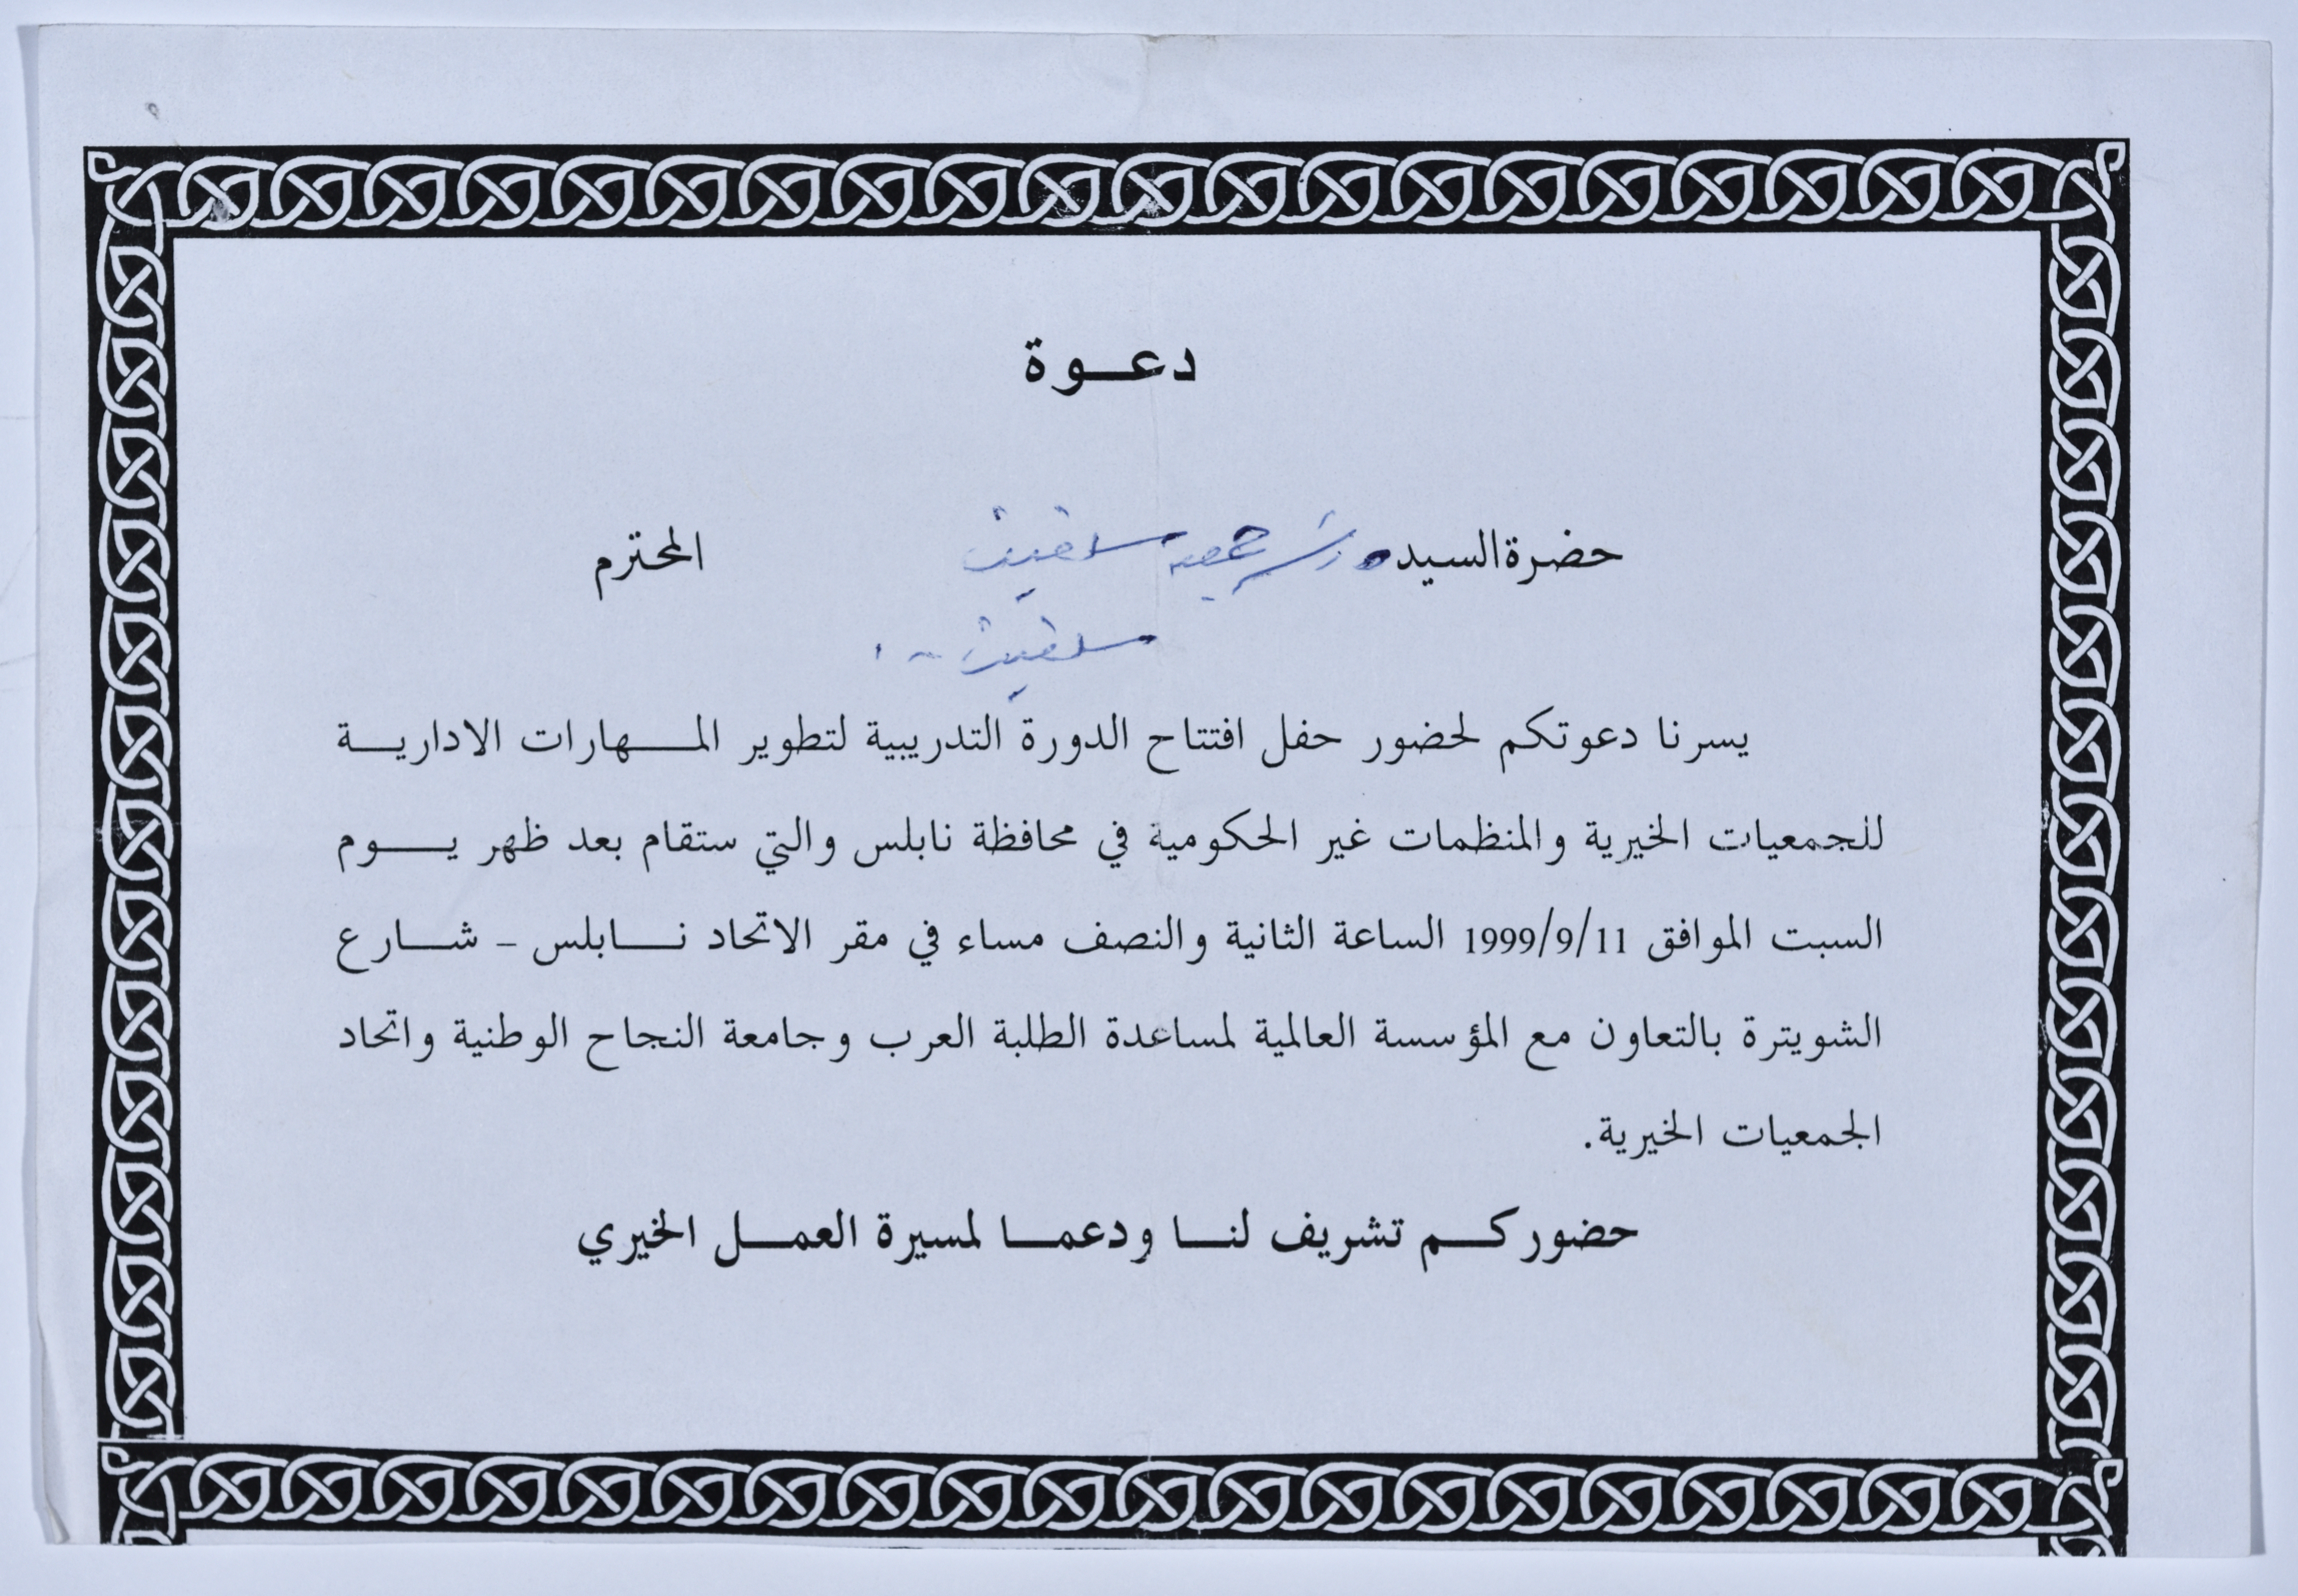 دعوة
حضرة السيد رئيس جمعية سلفيت المحترم
سلفيت
يسرنا دعوتكم لحضور حفل افتتاح الدورة التدريبية لتطوير المهارات الادارية
للجمعيات الخيرية والمنظمات غير الحكومية في محافظة نابلس والتي ستقام بعد ظهر يوم
السبت الموافق 1999/9/11 الساعة الثانية والنصف مساء في مقر الاتحاد نابلس - شارع
الشويترة بالتعاون مع المؤسسة العالمية لمساعدة الطلبة العرب وجامعة النجاح الوطنية واتحاد
الجمعيات الخيرية.
حضوركم تشريف لنا ودعما لمسيرة العمل الخيري